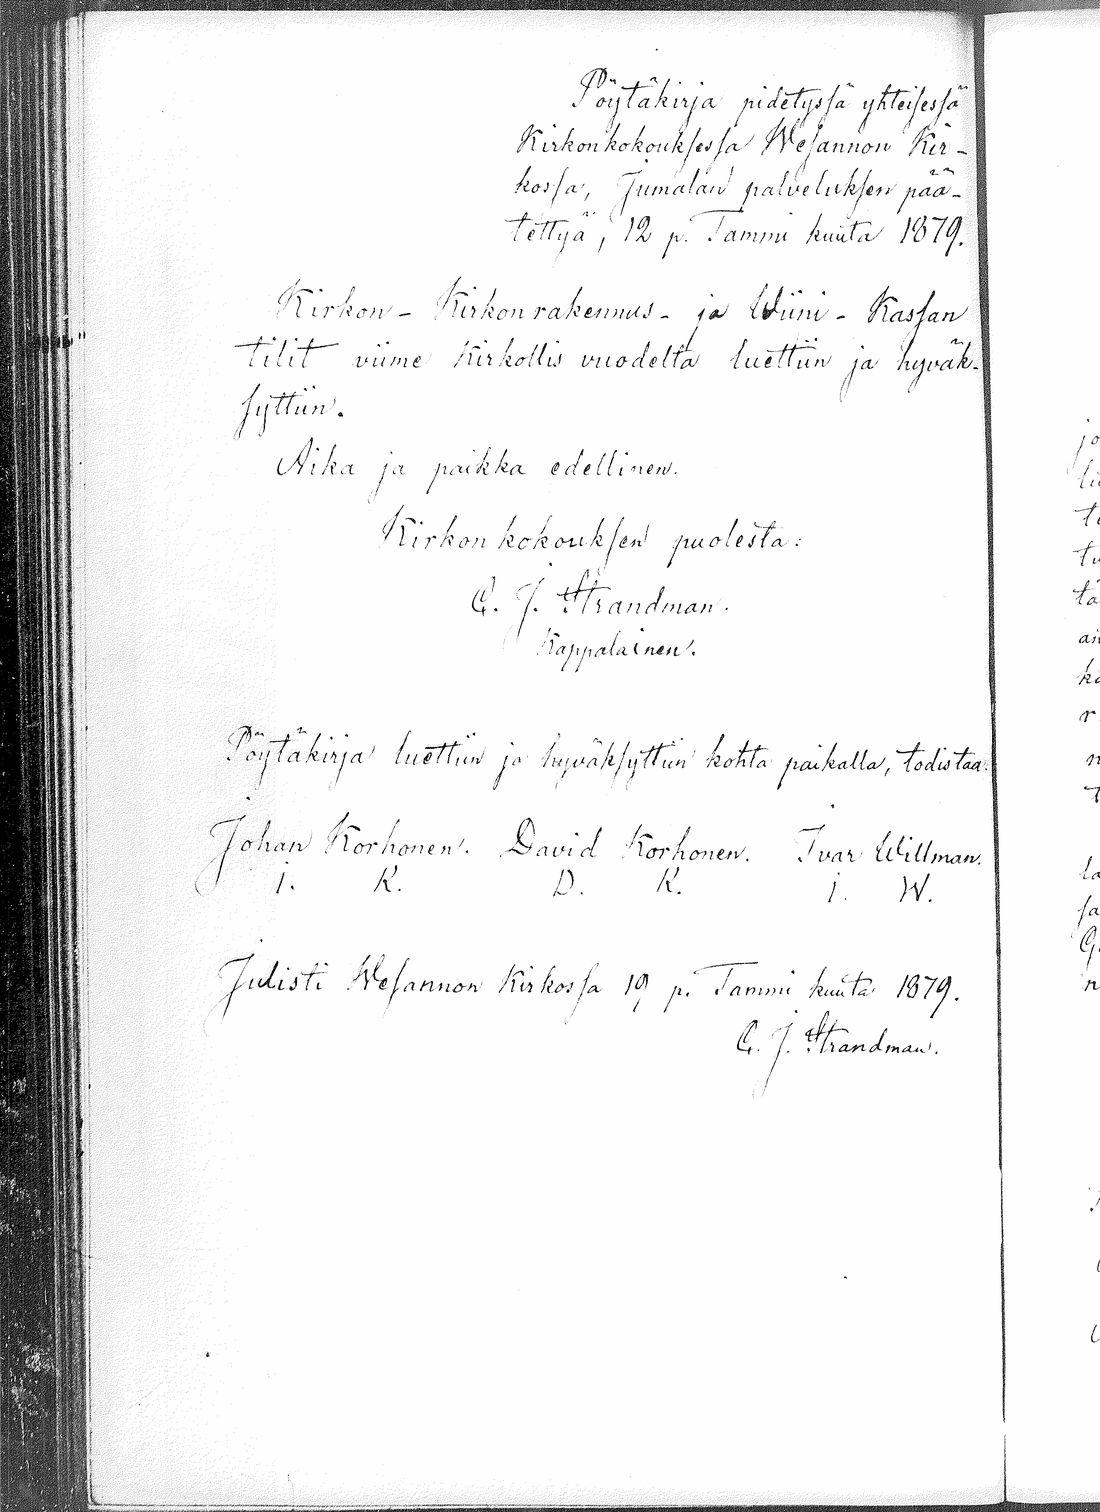 Pöytäkirja pidetyssä yhteisessä
Kirkonkokouksessa Wesannon Kir-
kossa, Jumalan palveluksen pää-
tettyä, 12 p. Tammi kuuta 1879.
Kirkon- Kirkonrakennus- ja Wiini- Kassan
tilit viime Kirkollis vuodelta luettiin ja hyväk-
syttiin.
Aika ja paikka edellinen.
Kirkon kokouksen puolesta:
C. J. Strandman.
Kappalainen.
Pöytäkirja luettiin ja hyväksyttiin kohta paikalla, todistaa:
Johan Korhonen. David Korhonen. Ivar Willman.
I. K. D. K. I. W.
Julisti Wesannon Kirkossa 19 p. Tammi kuuta 1879.
C. J. Strandman.